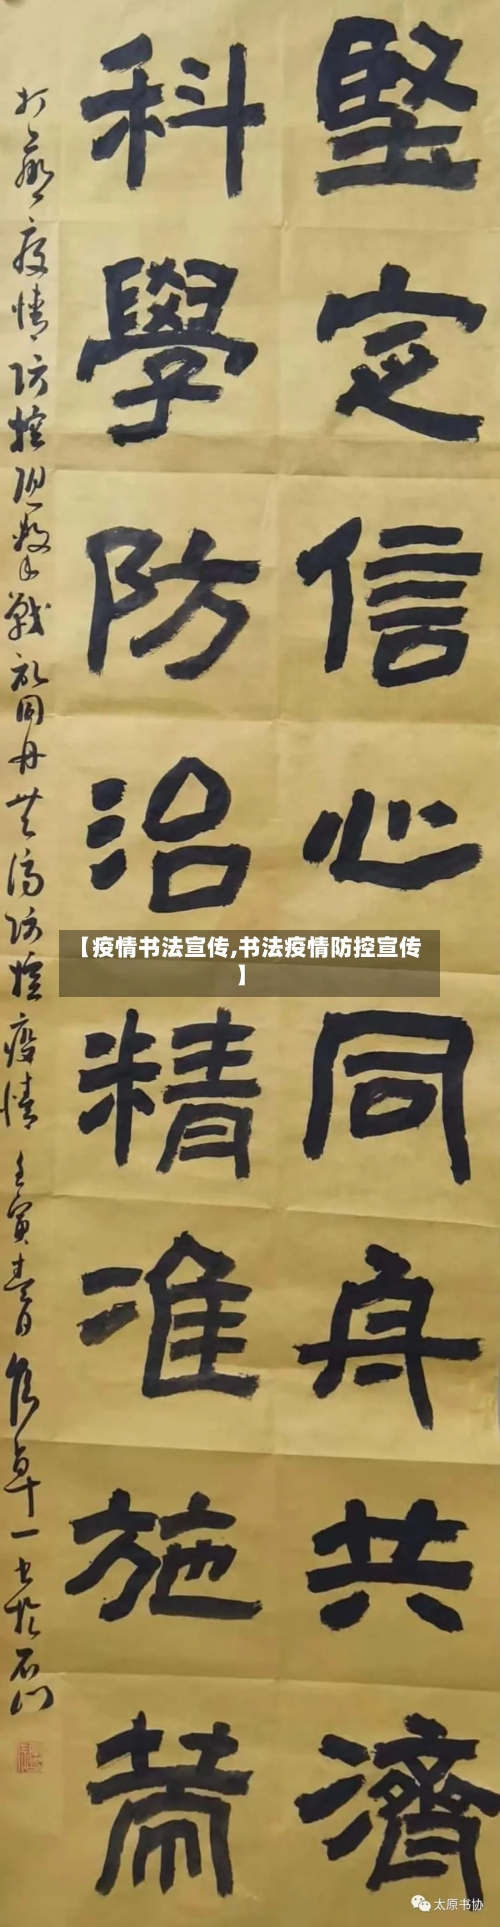 堅定信心同舟共濟
科學防治精准施策
打贏疫情防控阻擊戰同舟共濟防控疫情 壬寅春月卓一书於石门
【疫情书法宣传,书法疫情防控宣传
】
太原书协